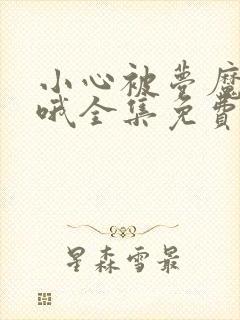 小心被夢魔
哦全集免費
星森雪最